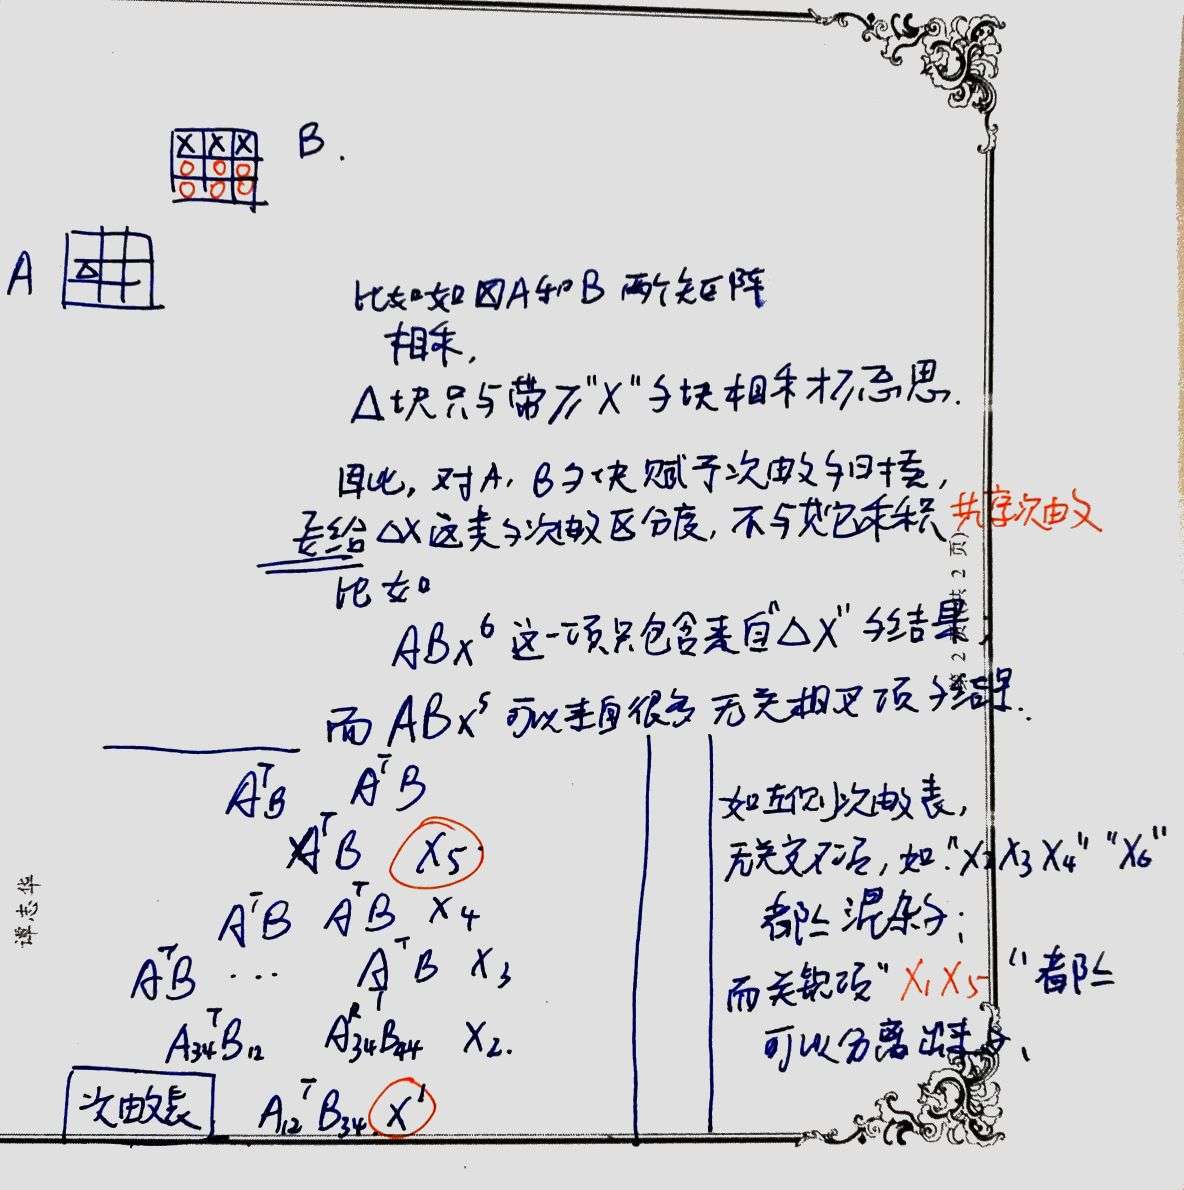 X X X B.
O O O
O O O
A
Δ
比如如图A和B两个矩阵
相乘,
Δ块只与带有"X"的块相乘才有意思.
因此, 对A, B的块赋予次数的目标是,
要给ΔX这类的次数区分度, 不与其它乘积共享次数
比如
ABx⁶ 这一项只包含来自"ΔX"的结果,
而 ABx⁵ 可以来自很多无关相叉项的结果.
AᵀB AᵀB
AᵀB X5
AᵀB AᵀB X4
AᵀB ... AᵀB X3
A34ᵀB12 A34ᵀB44 X2.
次数表 A12ᵀB34 X¹
如左侧次数表,
无关交叉项, 如"X2 X3 X4" "X6"
都是混杂的;
而关键项"X1 X5"都是
可以分离出来的.
谭志华